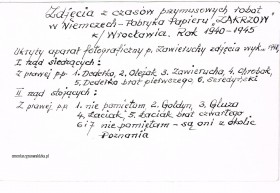 Zdjęcia z czasów przymusowych robot
w Niemczech - Fabryka Papieru ZAKRZOW
k/ Wrocławia. Rok 1940-1945
Ukryty aparat fotograficzny p. Zawieruchy zdjęcia wyk.
I rząd siedzących:
Z prawej p.p. 1. Dodełko, 2. Olejak 3. Zawierucha, 4. Chrobak,
5. Dodełko brat pierwszego, 6. Seredyński
II rząd stojących:
Z prawej p.p. 1. nie pamiętam, 2. Gołdyn, 3. Gluza
4. Łaciak, 5. Łaciak brat czwartego
6 i 7 nie pamiętam - są oni z okolic
Poznania